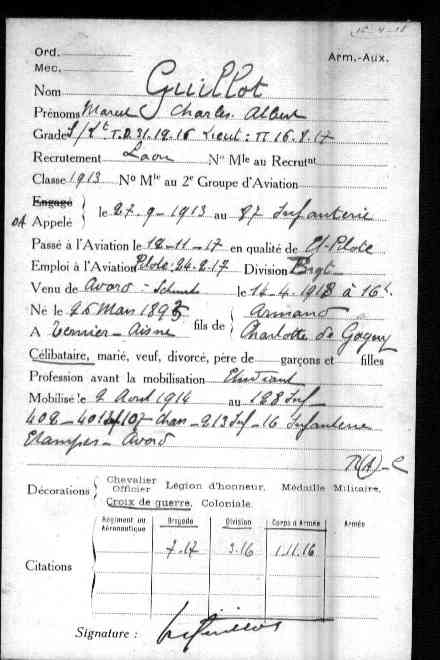 15-4-18
Ord.
Arm.-Aux.
Mec.
Nom Guillot
Prénoms Marcel Charles Albert
Grade S/Lt T.D. 31.12.16 Lieut: TT 16.8.17
Recrutement Laon No Mle au Recrutnt
Classe 1913 No Mle au 2e Groupe d'Aviation
Engagé
DA Appelé le 27-9-1913 au 87 Infanterie
Passé à l'Aviation le 12-11-17 en qualité de El-Pilote
Emploi à l'Aviation Pilote: 24.2.17 Division Brgt
Venu de Avord - le 14-4-1918 à 16h.
Né le 26 Mars 1893 Armand
A Vernier-Aisne fils de Charlotte de Gagny
Célibataire, marié, veuf, divorcé, père de garçons et filles
Profession avant la mobilisation Etudiant
Mobilisé le 2 Aout 1914 au 128 Inf
402 - 401 Inf 107 chas - 213 Inf - 16 Infanterie
Etampes - Avord
Décorations Chevalier Officier Légion d'honneur, Médaille Militaire,
Croix de guerre, Coloniale.
Régiment ou Aéronautique Brigade Division Corps d'Armée Armée
7-17 3-16 1.11.16
Citations
Signature : Guillot